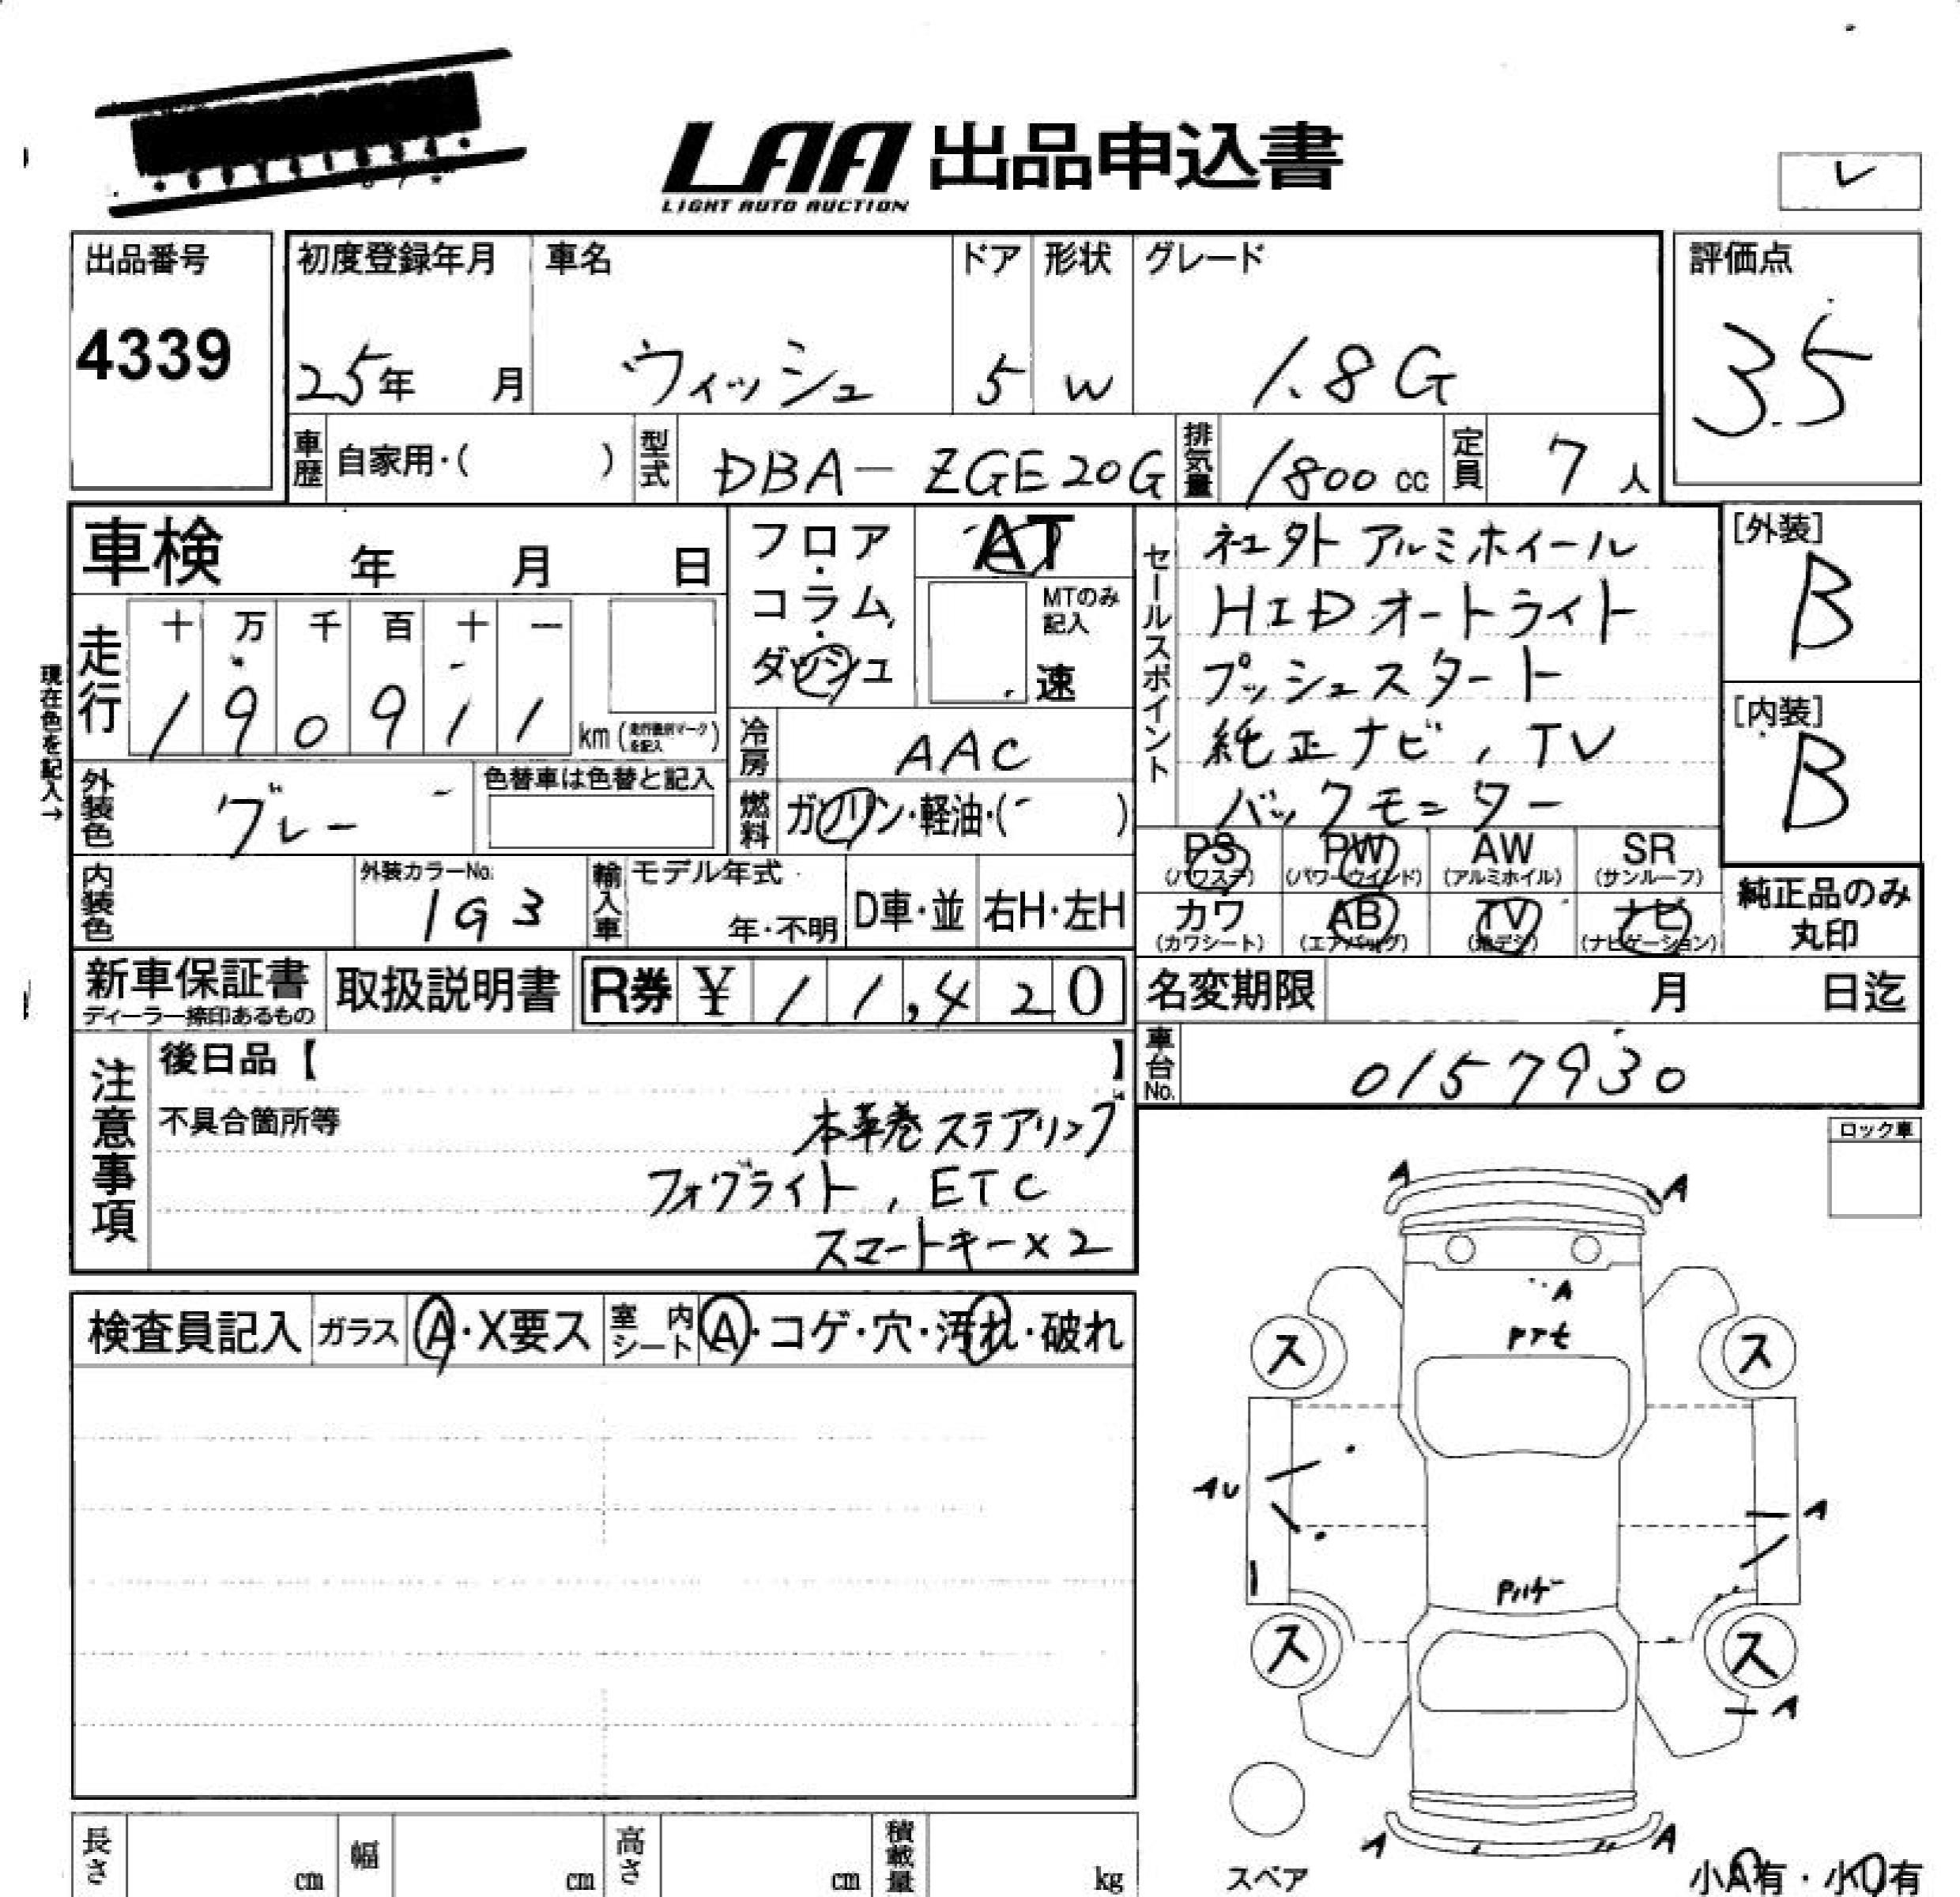 LAA 出品申込書
LIGHT AUTO AUCTION
出品番号
4339
初度登録年月
25年 月
車名
ウィッシュ
ドア
5
形状
W
グレード
1.8G
評価点
3.5
車歴 自家用・( )
型式 DBA-ZGE20G
排気量 1800 cc
定員 7 人
車検 年 月 日
フロア・コラム・ダッシュ
AT
MTのみ記入
速
セールスポイント
社外アルミホイール
HIDオートライト
プッシュスタート
純正ナビ, TV
バックモニター
[外装]
B
[内装]
B
現在色を記入→
走行
十 万 千 百 十 一
1 9 0 9 1 1 km
冷房 AAC
外装色 グレー
色替車は色替と記入
燃料 ガソリン・軽油・( )
PS (パワステ)
PW (パワーウインド)
AW (アルミホイル)
SR (サンルーフ)
カワ (カワシート)
AB (エアバッグ)
TV (地デジ)
ナビ (ナビゲーション)
純正品のみ丸印
内装色
外装カラーNo.
1G3
輸入車
モデル年式
年・不明
D車・並
右H・左H
新車保証書
ディーラー捺印あるもの
取扱説明書
R券 ¥ 11,420
名変期限 月 日迄
車台No. 0157930
注意事項
後日品【 】
不具合箇所等
本革巻ステアリング
フォグライト, ETC
スマートキー×2
ロック車
検査員記入
ガラス A・X要ス
室内シート A・コゲ・穴・汚れ・破れ
A
A
A
ス
ス
AU
A
ス
ス
A
A
A
スペア
小A有・小U有
長さ cm
幅 cm
高さ cm
積載量 kg